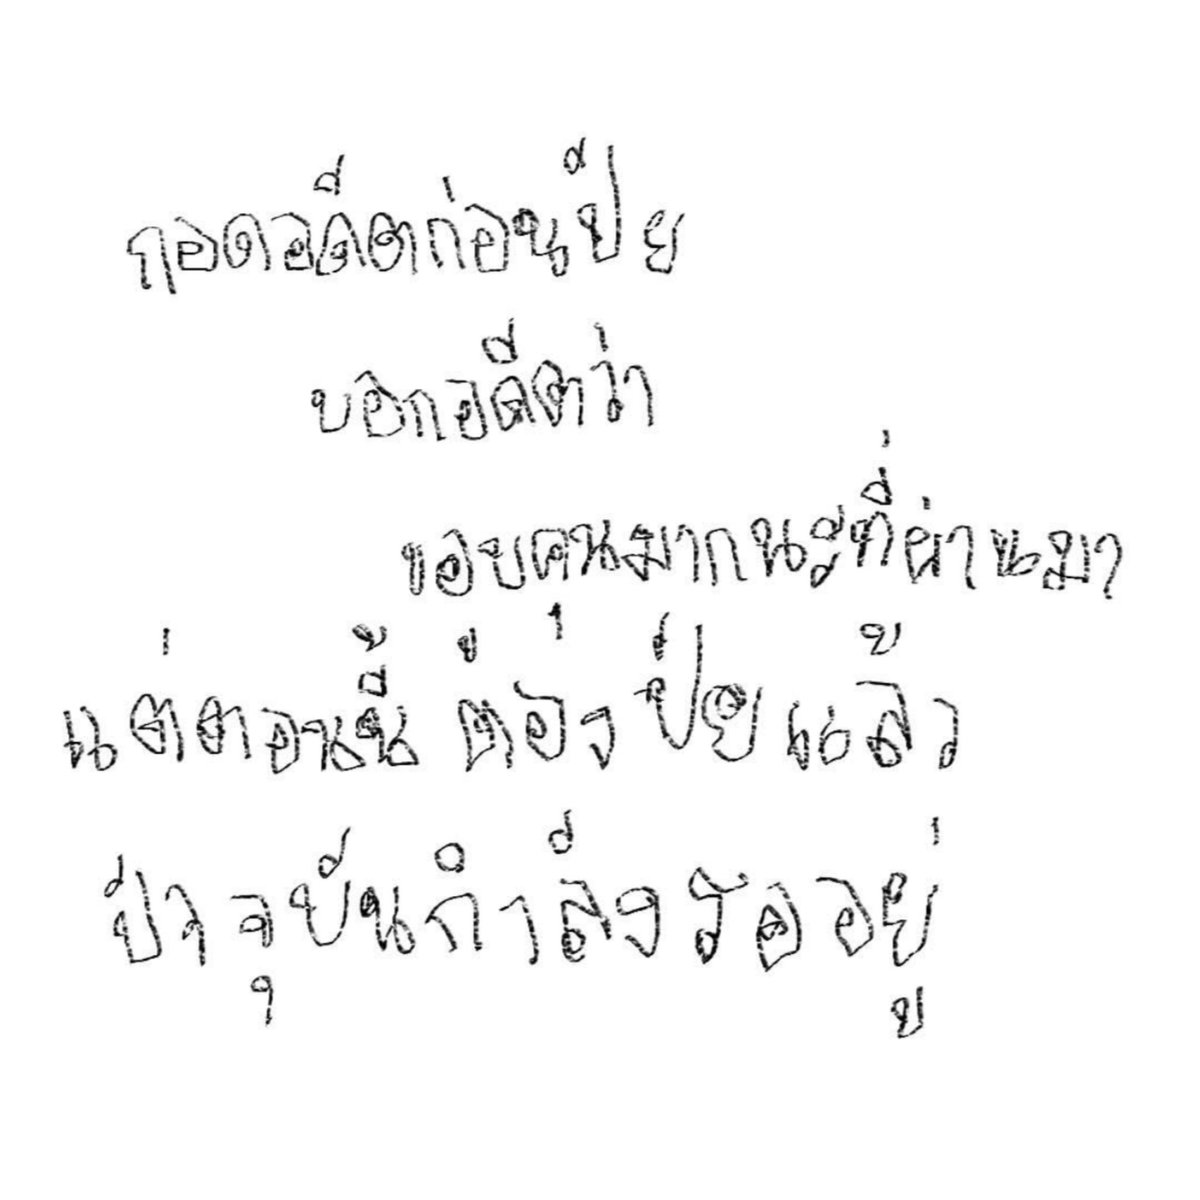 กอดอดีตก่อนปัย
บอกอดีตว่า
ขอบคุณมากนะที่ผ่านมา
แต่ตอนนี้ ต้องปัยแล้ว
ปัจจุบันกำลังรออยู่